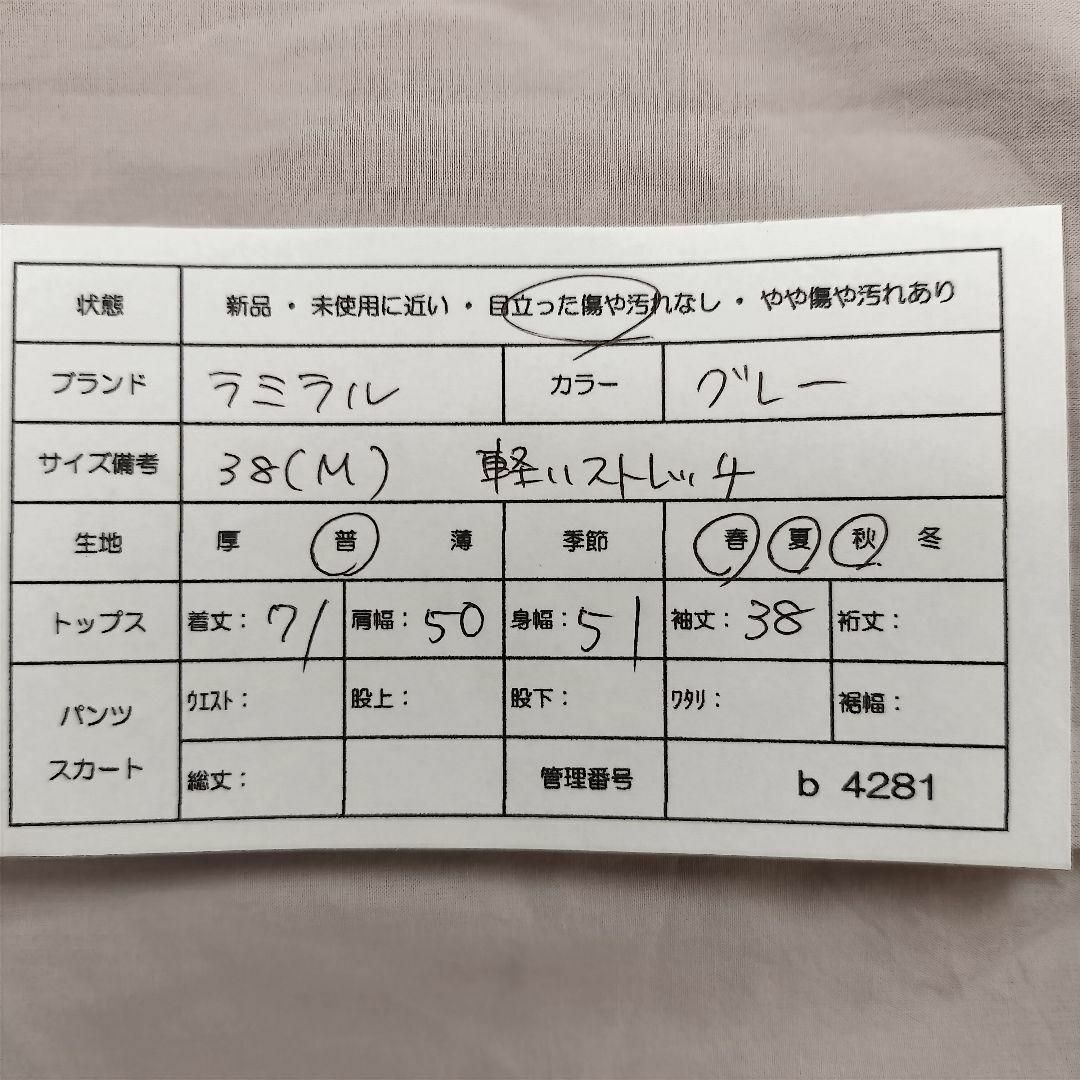 状態 新品 ・ 未使用に近い ・ 目立った傷や汚れなし ・ やや傷や汚れあり
ブランド ラミラル カラー グレー
サイズ備考 38(M) 軽いストレッチ
生地 厚 普 薄 季節 春 夏 秋 冬
トップス 着丈: 71 肩幅: 50 身幅: 51 袖丈: 38 裄丈:
パンツ スカート ウエスト: 股上: 股下: ワタリ: 裾幅:
総丈: 管理番号 b 4281